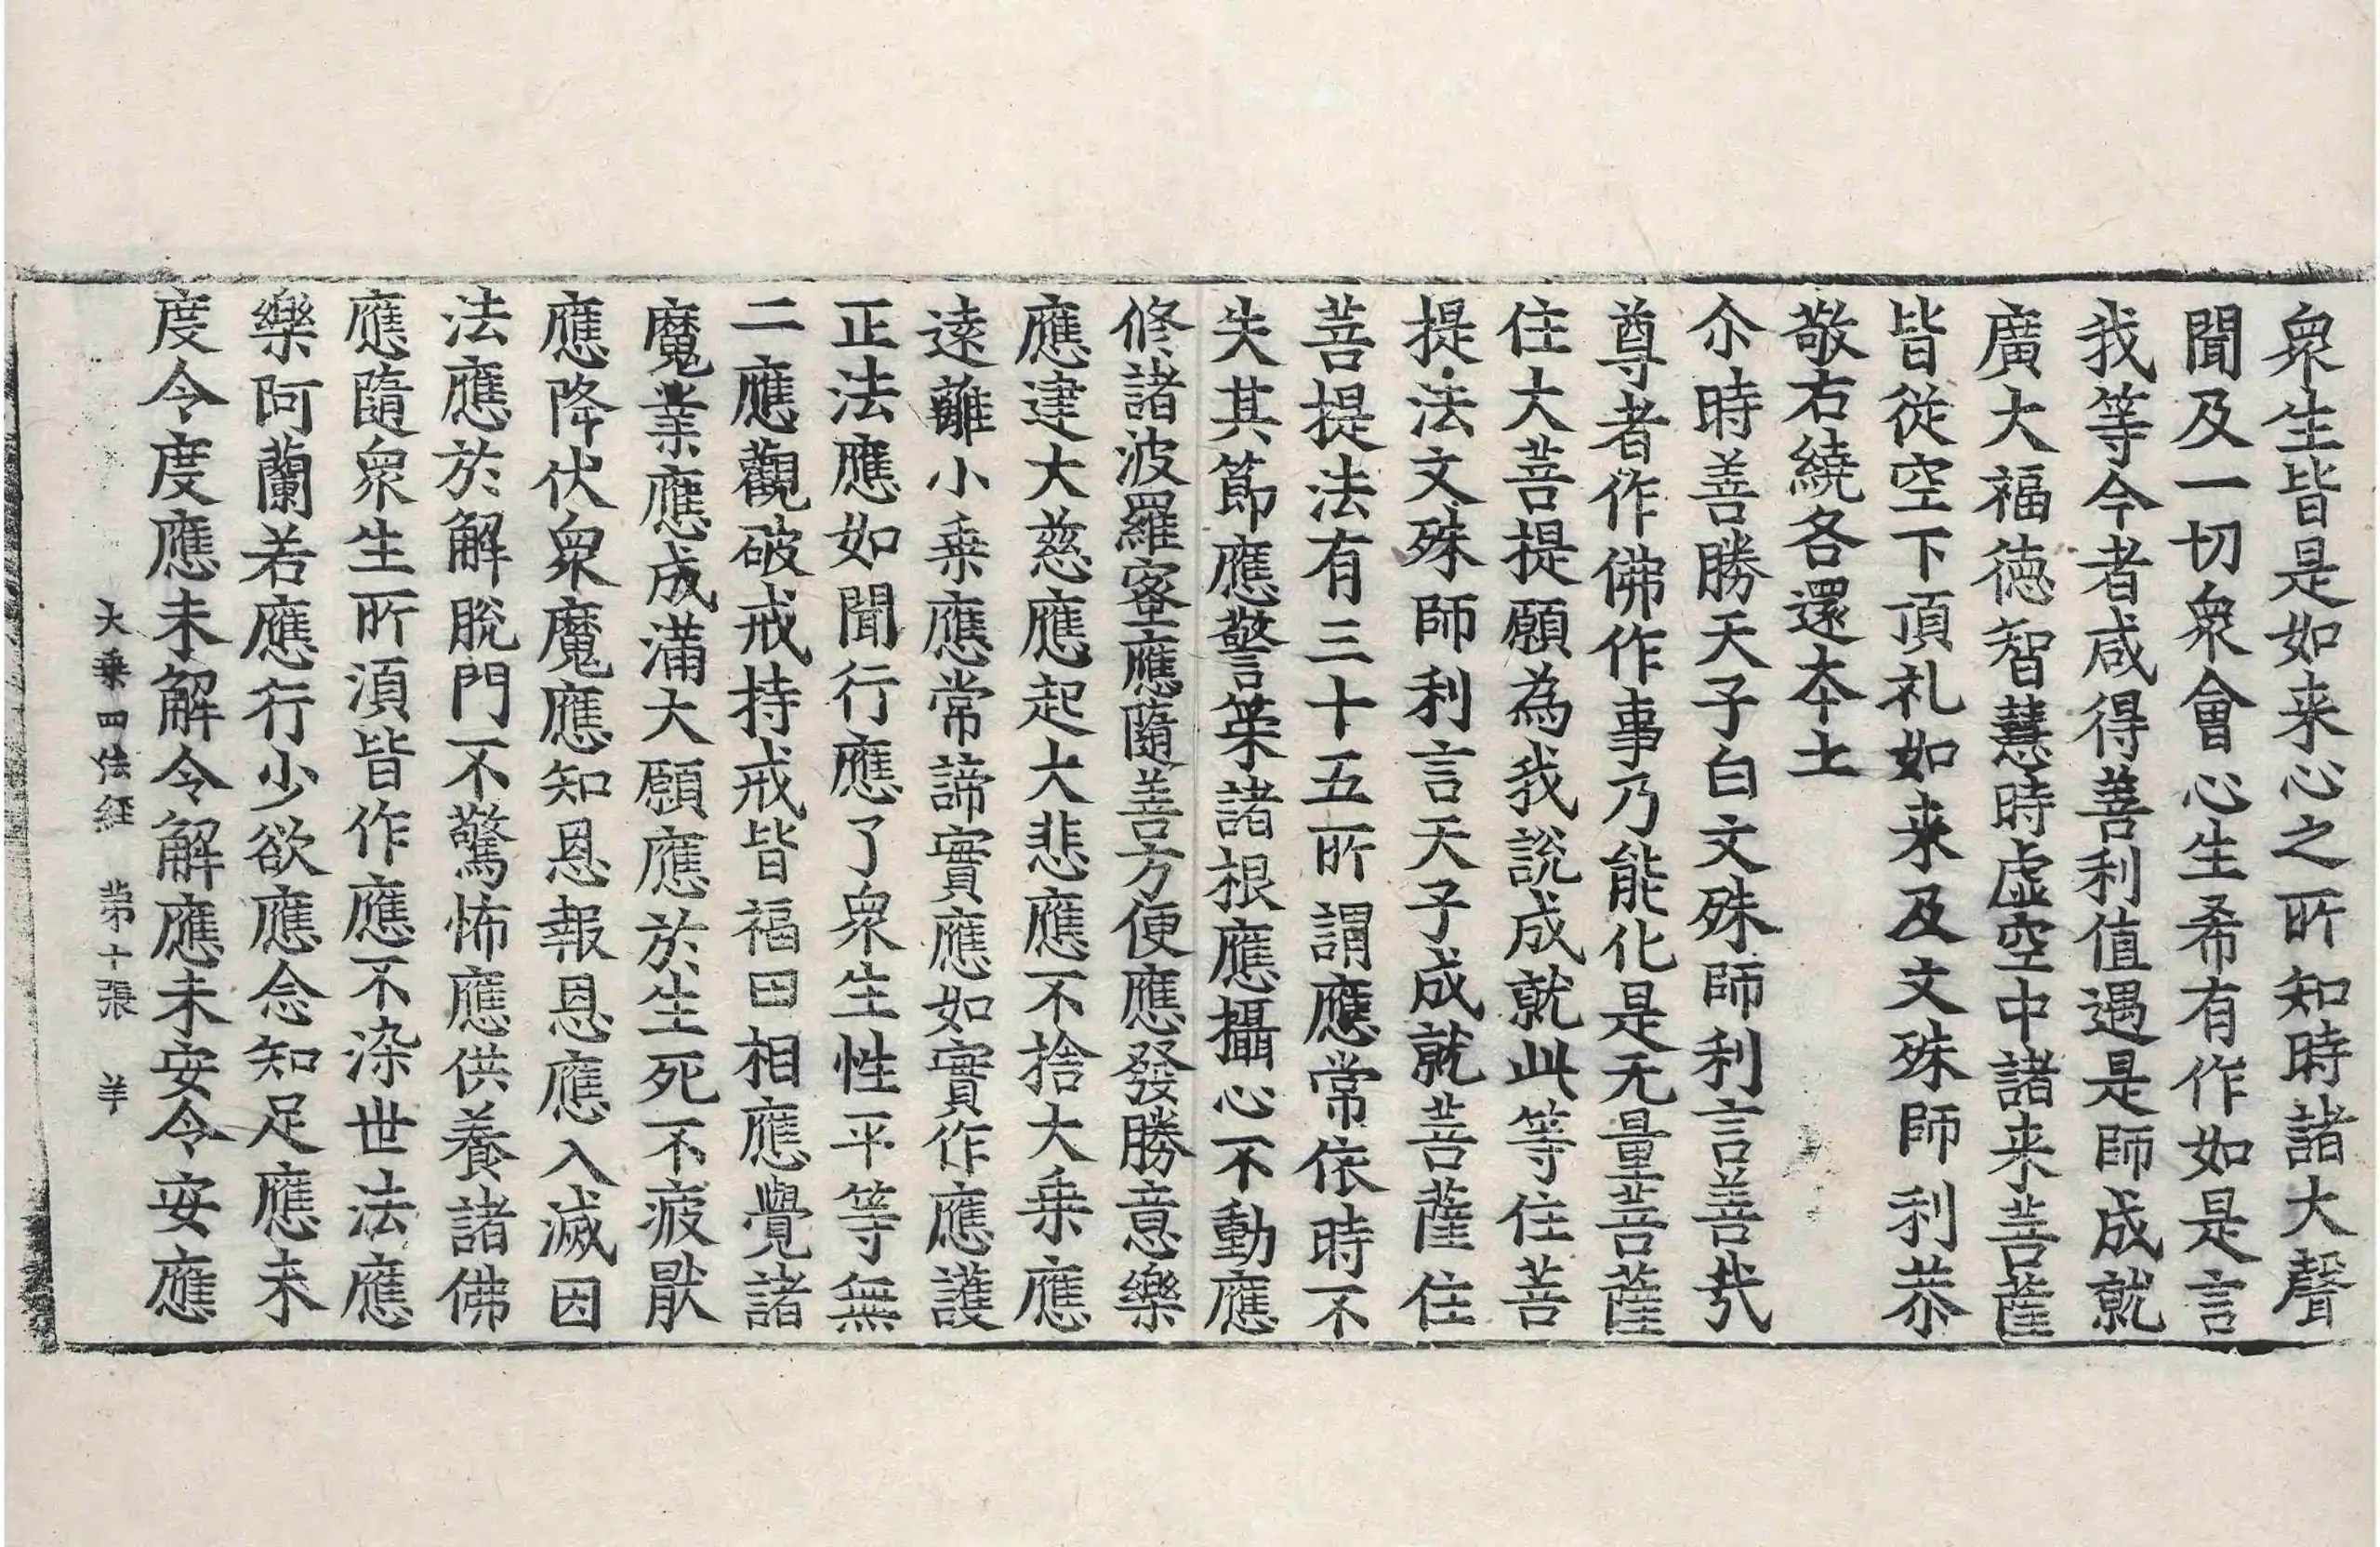 衆生皆是如来心之所知時諸大聲
聞及一切衆會心生希有作如是言
我等今者咸得善利值遇是師成就
廣大福德智慧時虛空中諸来菩薩
皆從空下頂礼如来及文殊師利恭
敬右繞各還本土
尒時善勝天子白文殊師利言善㢤
尊者作佛作事乃能化是无量菩薩
住大菩提願為我說成就此等住菩
提法文殊師利言天子成就菩薩住
菩提法有三十五所謂應常依時不
失其節應警策諸根應攝心不動應
修諸波羅蜜應隨善方便應發勝意樂
應建大慈應起大悲應不捨大乗應
遠離小乗應常諦實應如實作應護
正法應如聞行應了衆生性平等無
二應觀破戒持戒皆福田相應覺諸
魔業應成滿大願應於生死不疲猒
應降伏衆魔應知恩報恩應入滅因
法應於解脫門不驚怖應供養諸佛
應隨衆生所湏皆作應不染世法應
樂阿蘭若應行少欲應念知足應未
度令度應未解令解應未安令安應
大乗四法経 苐十張 羊